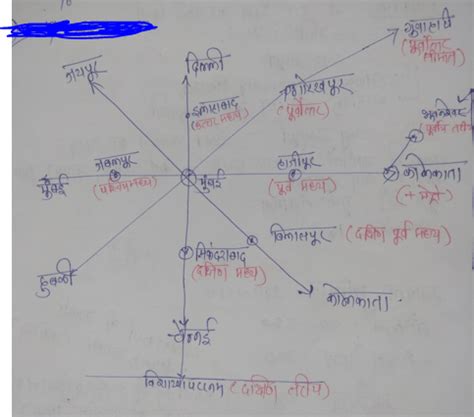 गुवाहाटी
(पूर्वोत्तर
सीमांत)
जयपुर
दिल्ली
गोरखपुर
(पूर्वोत्तर)
इलाहाबाद
(उत्तर मध्य)
भुवनेश्वर
(पूर्वीय तटीय)
जबलपुर
मुंबई
(पश्चिम मध्य)
मुंबई
हाजीपुर
(पूर्व मध्य)
कोलकाता
(+ मेट्रो)
बिलासपुर (दक्षिण पूर्व मध्य)
सिकंदराबाद
(दक्षिण मध्य)
हुबली
कोलकाता
चेन्नई
विशाखापटनम (दक्षिण तटीय)